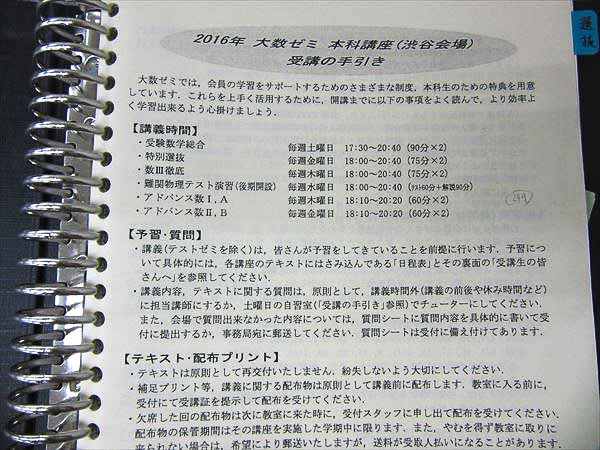 選抜
2016年 大数ゼミ 本科講座(渋谷会場)
受講の手引き
大数ゼミでは，会員の学習をサポートするためのさまざまな制度，本科生のための特典を用意
しています．これらを上手く活用するために，開講までに以下の事項をよく読んで，より効率よ
く学習出来るよう心掛けましょう．
【講義時間】
・受験数学総合 毎週土曜日 17:30〜20:40 (90分×2)
・特別選抜 毎週土曜日 18:00〜20:40 (75分×2)
・数Ⅲ徹底 毎週木曜日 18:00〜20:40 (75分×2)
・難関物理テスト演習(後期開設) 毎週木曜日 18:00〜20:40 (ﾃｽﾄ60分+解説90分)
・アドバンス数Ⅰ,A 毎週金曜日 18:10〜20:20 (60分×2)
・アドバンス数Ⅱ,B 毎週金曜日 18:10〜20:20 (60分×2)
【予習・質問】
・講義(テストゼミを除く)は，皆さんが予習をしてきていることを前提に行います．予習につ
いて具体的には，各講座のテキストにはさみ込んである「日程表」とその裏面の「受講生の皆
さんへ」を参照してください．
・講義内容，テキストに関する質問は，原則として，講義時間外(講義の前後や休み時間など)
に担当講師にするか，土曜日の自習室(「受講の手引き」参照)でチューターにしてください．
また，会場で質問出来なかった内容については，質問シートに質問内容を具体的に書いて受
付に提出するか，事務局宛に郵送してください．質問シートは受付に備え付けてあります．
【テキスト・配布プリント】
・テキストは原則として再交付いたしません．紛失しないよう大切にしてください．
・補足プリント等，講義に関する配布物は原則として講義前に配布します．教室に入る前に，
受付にて受講証を提示して配布を受けてください．
・欠席した回の配布物は次に教室に来た時に，受付スタッフに申し出て配布を受けてください．
配布物の保管期間はその講座を実施した学期中に限ります．また，やむを得ず教室に取りに
来られない場合は，希望により郵送いたしますが，送料が受取人払いになることがあります．